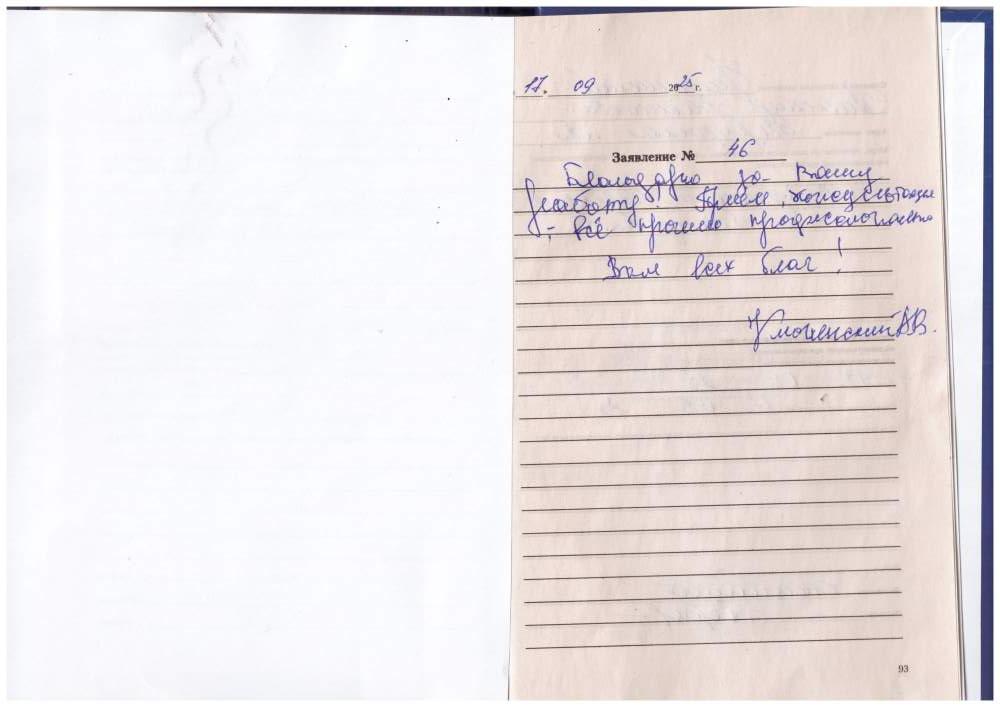 17. 09 2025 г.
Заявление № 46
Благодарю за Вашу
работу! Прием, консультация
- всё прошло профессионально
Вам всех благ!
А.В.
93